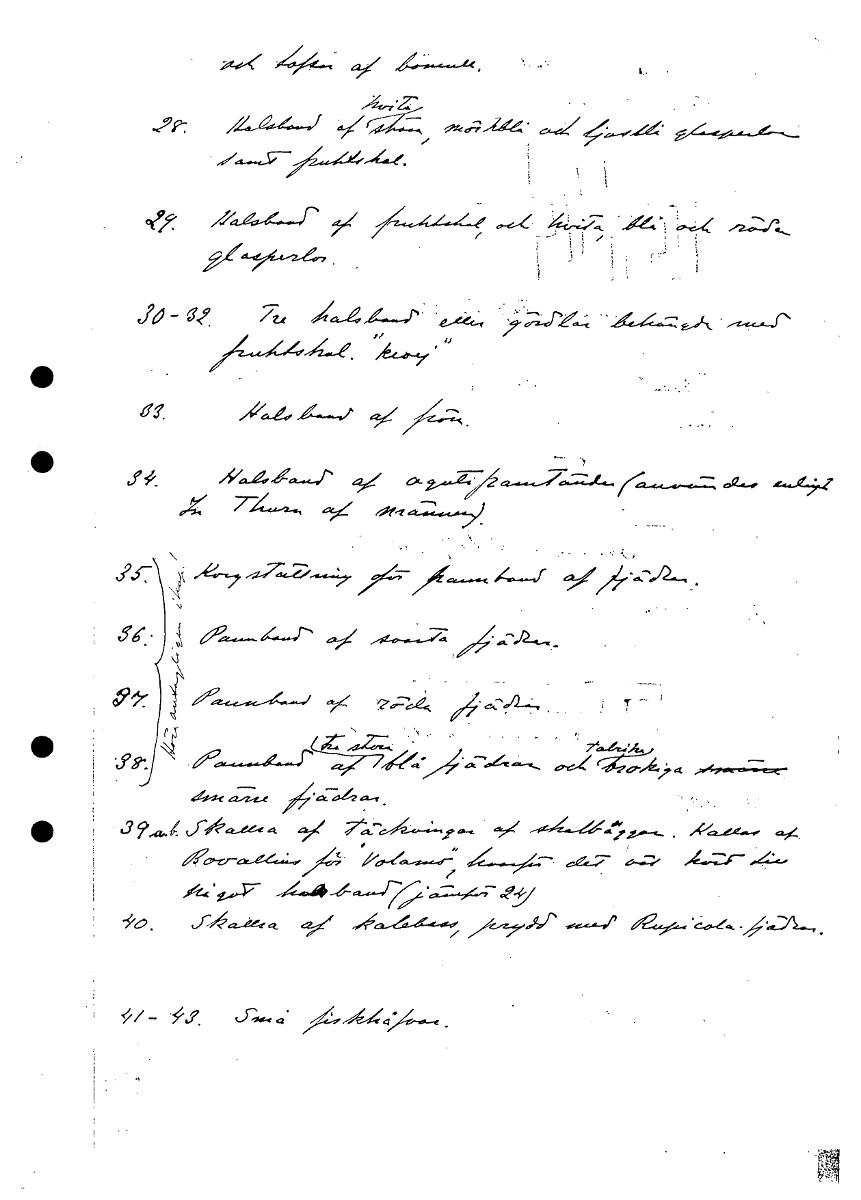 och tofsar af bomull.
hvita
28. Halsband af stora, mörkblå och ljusblå glasperlor
samt fruktskal.
29. Halsband af fruktskal, och hvita, blå och röda
glasperlor.
30-32. Tre halsband eller gördlar behängde med
fruktskal. "
33. Halsband af frön.
34. Halsband af agutiframtänder (användes enligt
Im Thurn af männen).
35. Korgställning för pannband af fjädrar.
36. Pannband af svarta fjädrar.
37. Pannband af röda fjädrar.
Höra antagligen ihop!
tre stora talrika
38. Pannband af blå fjädrar och brokiga smärre
smärre fjädrar.
39 a.b. Skallra af täckvingar af skalbaggar. Kallas af
Bovallius för "Volamo", hvarför det väl hört till
något halsband (jämför 24)
40. Skallra af kalebass, prydd med Rupicola-fjädrar.
41-43. Små fiskhåfvar.